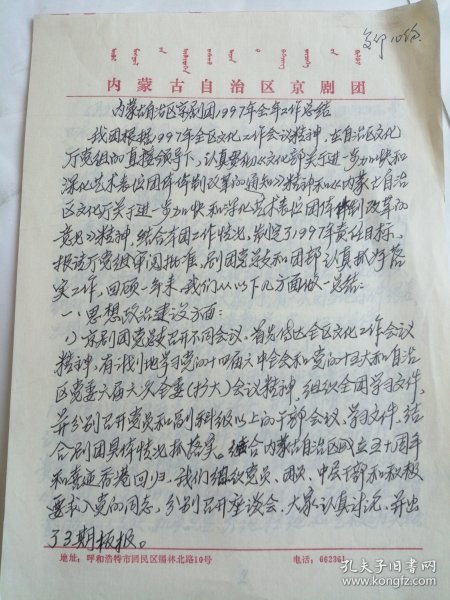 复印10份
内蒙古自治区京剧团
内蒙古自治区京剧团1997年全年工作总结
我团根据1997年全区文化工作会议精神,在自治区文化
厅党组的直接领导下,认真贯彻《文化部关于进一步加快和
深化艺术表演团体体制改革的通知》精神和《内蒙古自治
区文化厅关于进一步加快和深化艺术表演团体体制改革的
意见》精神,结合本团工作情况,制定了1997年责任目标,
根据厅党组审阅批准,剧团党总支和团部认真抓好落
实工作,回顾一年来,我们从以下几方面做一总结:
一、思想政治建设方面:
1)京剧团党总支召开不同会议,首先传达全区文化工作会议
精神,有计划地学习党的十四届六中全会和党的十五大和自治
区党委六届六次全委(扩大)会议精神,组织全团学习文件,
并分别召开党员和副科级以上的干部会议,学习文件,结
合剧团具体情况抓落实。结合内蒙古自治区成立五十周年
和喜迎香港回归,我们组织党员、团员、中层干部和积极
要求入党的同志,分别召开座谈会,大家认真讨论,并出
了三期板报。
地址:呼和浩特市回民区锡林北路10号 电话:662361
孔夫子旧书网